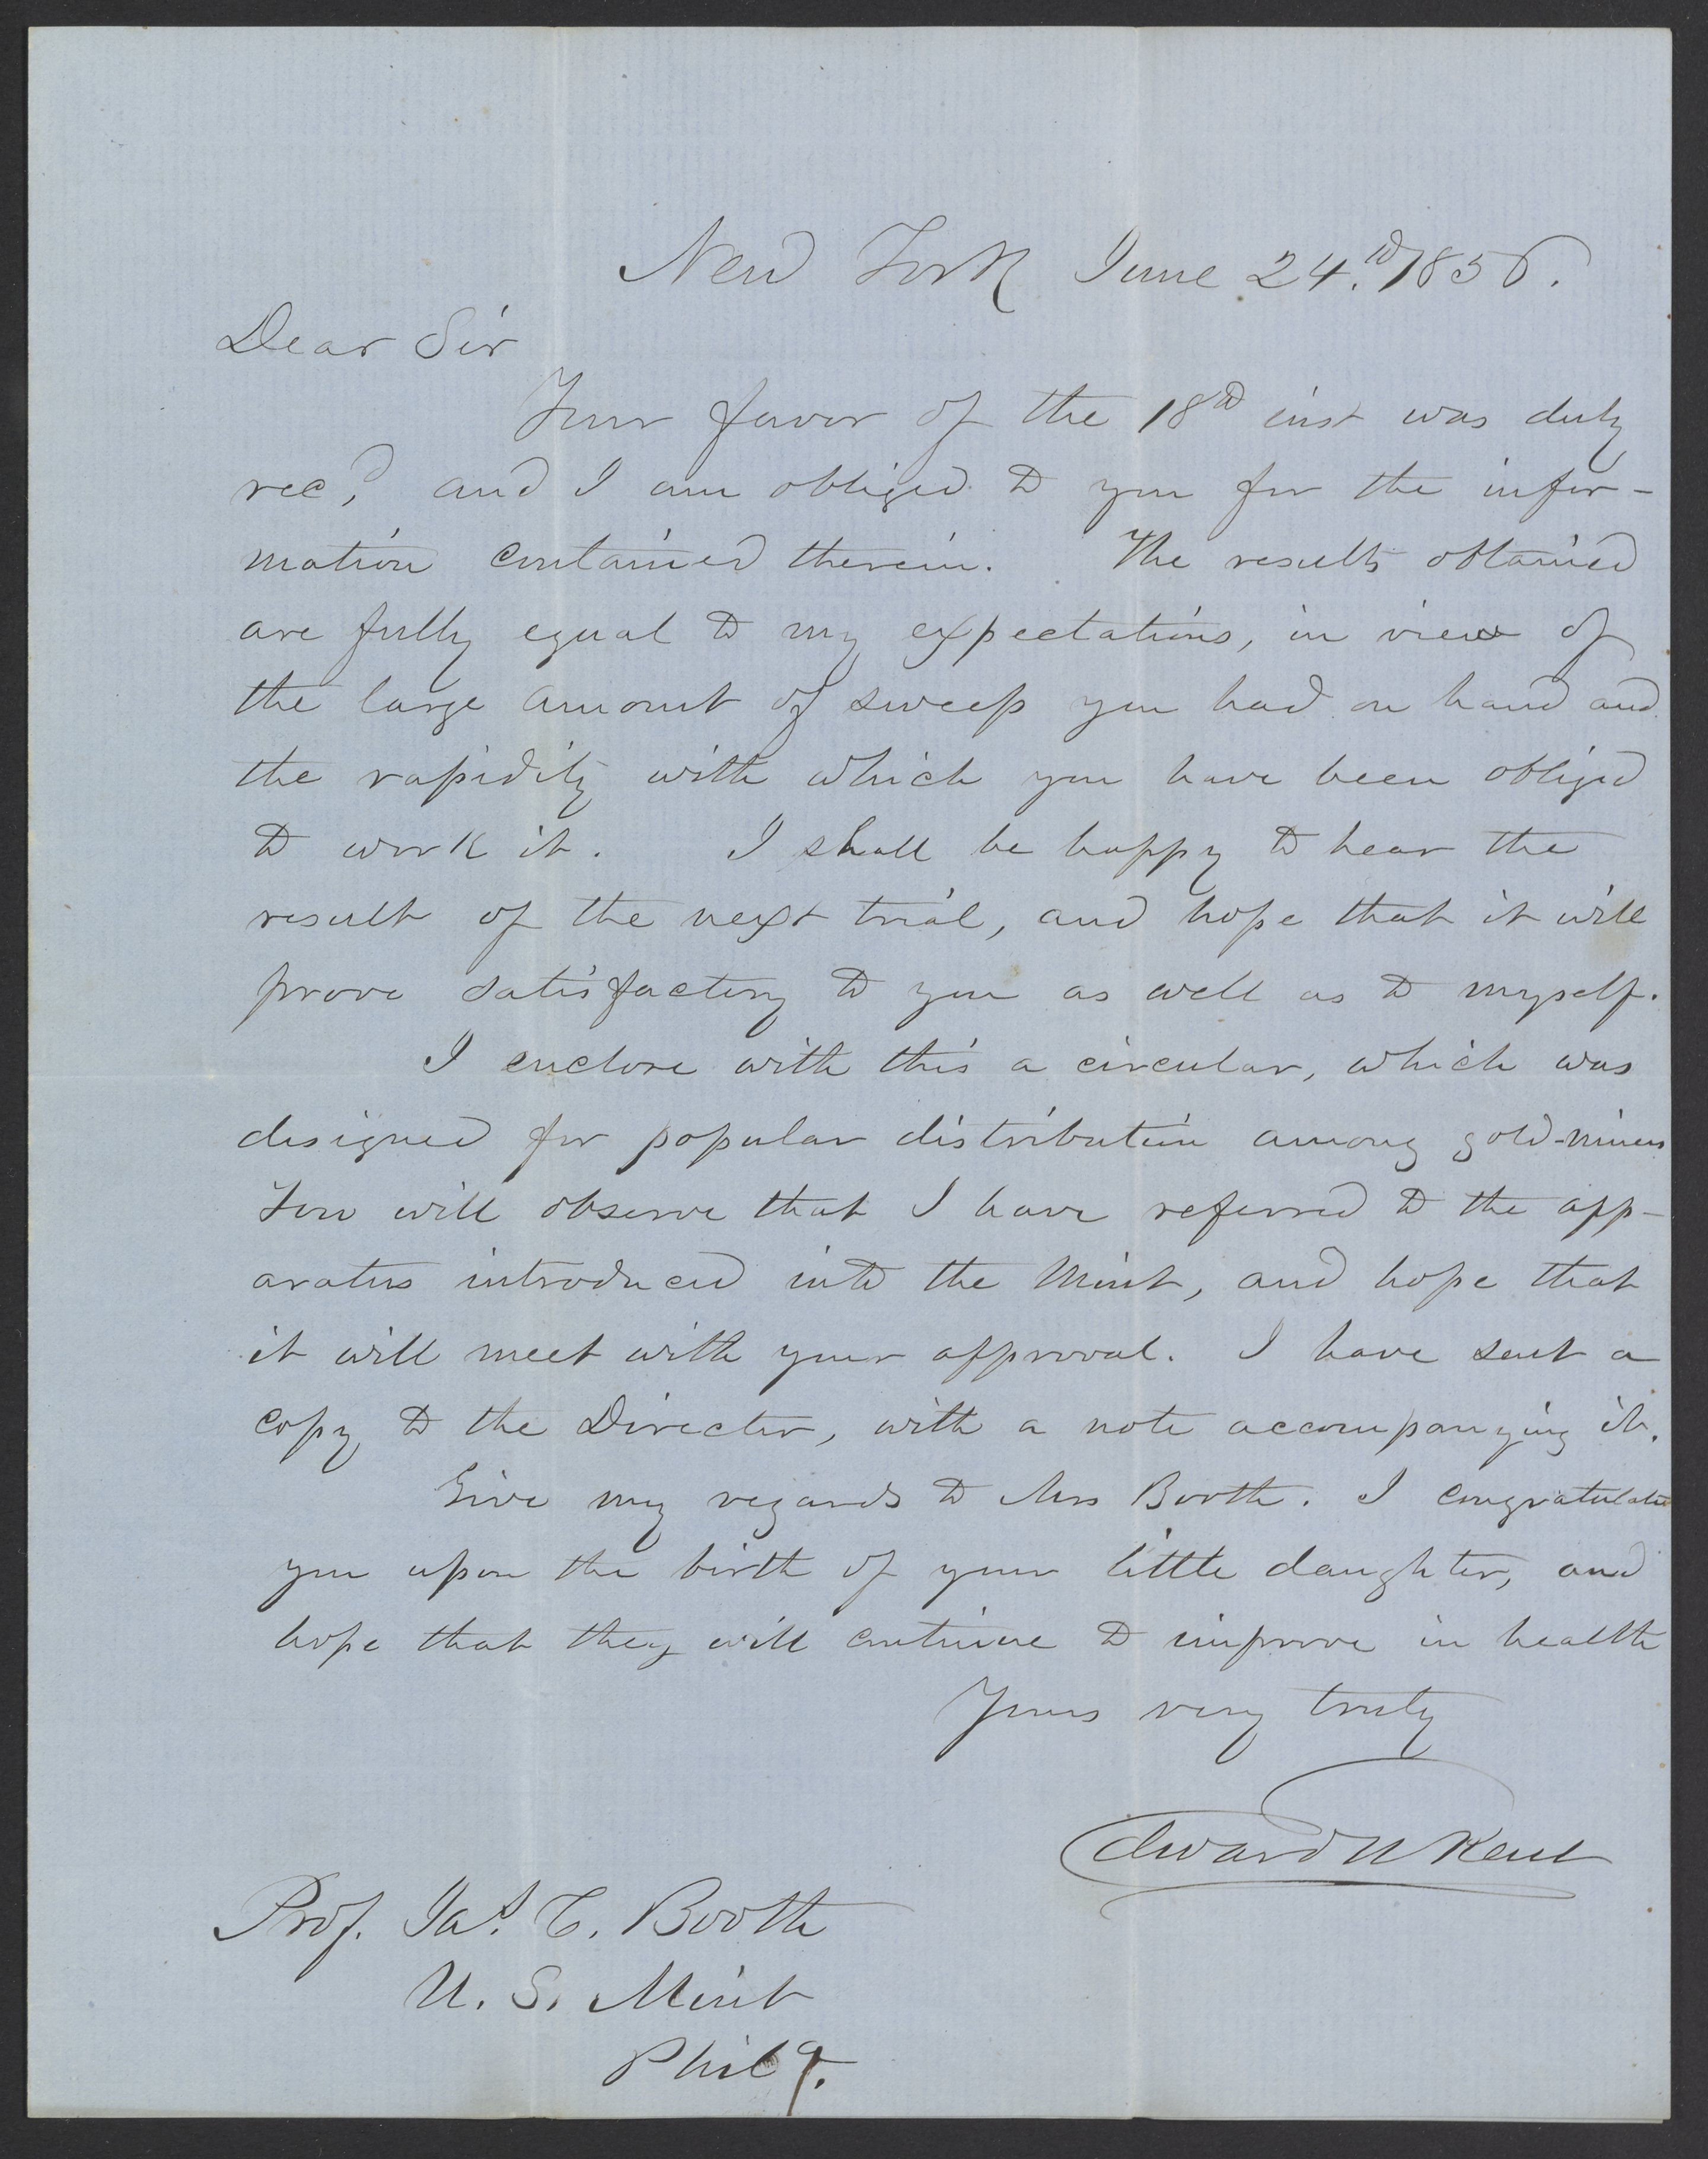 New York June 24.th 1856.
Dear Sir
Your favor of the 18th inst was duly
rec'd, and I am obliged to you for the infor-
mation contained therein. The results obtained
are fully equal to my expectations, in view of
the large amount of sweep you had on hand and
the rapidity with which you have been obliged
to work it. I shall be happy to hear the
result of the next trial, and hope that it will
prove satisfactory to you as well as to myself.
I enclose with this a circular, which was
designed for popular distribution among gold-miners
You will observe that I have referred to the app-
aratus introduced into the Mint, and hope that
it will meet with your approval. I have sent a
copy to the Director, with a note accompanying it.
Give my regards to Mrs Booth. I congratulate
you upon the birth of your little daughter, and
hope that they will continue to improve in health
Yours very truly
Edward N Kent
Prof. Jas. C. Booth
U. S. Mint
Phila.